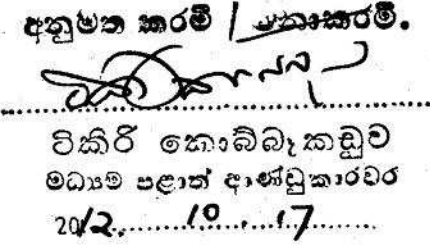 අනුමත කරමි / නොකරමි.
ටිකිරි කොබ්බෑකඩුව
මධ්‍යම පළාත් ආණ්ඩුකාරවර
2012. 10. 17